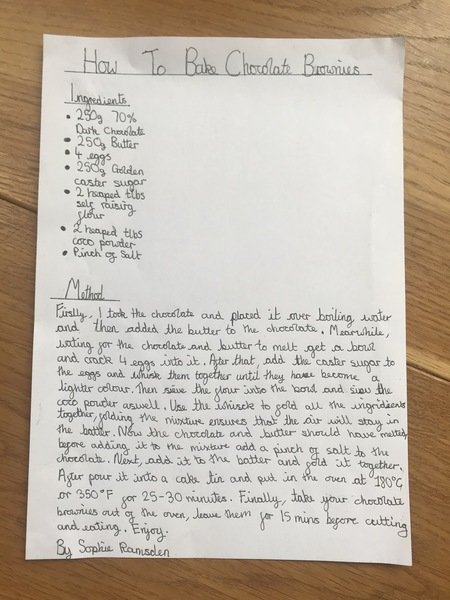 How To Bake Chocolate Brownies
Ingredients
• 250g 70%
Dark Chocolate
• 250g Butter
• 4 eggs
• 250g Golden
caster sugar
• 2 heaped tlbs
self raising
flour
• 2 heaped tlbs
coco powder
• Pinch of Salt
Method
Firstly, I took the chocolate and placed it over boiling water
and then added the butter to the chocolate. Meanwhile,
waiting for the chocolate and butter to melt get a bowl
and crack 4 eggs into it. After that, add the caster sugar to
the eggs and whisk them together until they have become a
lighter colour. Then sieve the flour into the bowl and sieve the
coco powder aswell. Use the whisck to fold all the ingridients
together, folding the mixture ensures that the air will stay in
the batter. Now the chocolate and butter should have melted,
before adding it to the mixture add a pinch of salt to the
chocolate. Next, add it to the batter and fold it together.
After pour it into a cake tin and put in the oven at 180°C
or 350°F for 25-30 minutes. Finally, take your chocolate
brownies out of the oven, leave them for 15 mins before cutting
and eating. Enjoy.
By Sophie Ramsden